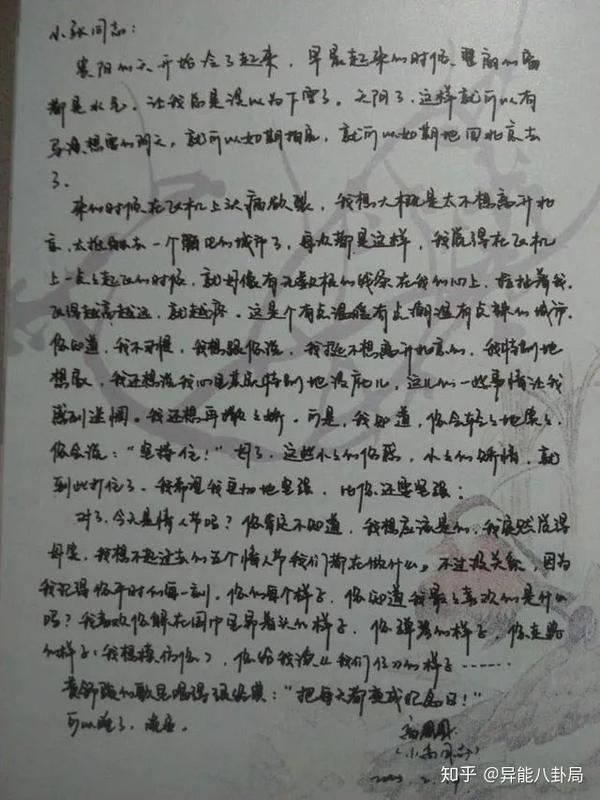 小张同志：
襄阳的天开始冷了起来，早晨起来的时候，整扇的窗
都是水气，让我总是误以为下雪了。天阴了，这样就可以有
导演想要的阴天，就可以如期拍完，就可以如期地回北京去
了。
来的时候在飞机上头痛欲裂，我想大概是太不想离开北
京，去一个陌生的城市了，每次都是这样，我觉得在飞机
上一点点起飞的时候，就好像有无数根的线系在我的心上，拉扯着我，
飞得越高越远，就越疼。这是个有点温暖有点潮湿有点辣的城市。
你知道，我不习惯，我想跟你说，我挺不想离开北京的，我特别地
想家，我还想说我心里其实特别地没底儿，这儿的一些事情让我
感到迷惘。我还想再撒撒娇。可是，我知道，你会轻轻地
你会说："坚持住！"好了，这些小小的伤感，小小的矫情，就
到此打住了。我希望我更加地坚强，比你还要坚强：
对了，今天是情人节吗？你肯定不知道，我想应该是的，我突然觉得
好笑，我想不起过去的五个情人节我们都在做什么。不过没关系，因为
我记得你平时的每一刻，你的每个样子，你知道我最最喜欢的是什么
吗？我喜欢你躲在围巾里昂着头的样子，你弹琴的样子，你走路
的样子（我想模仿你），你给我读《我们仨》的样子……
黄舒骏的歌是唱得很经典："把每天都变成纪念日！"
可以睡了，晚安。
(小高同志)
知乎 @异能八卦局